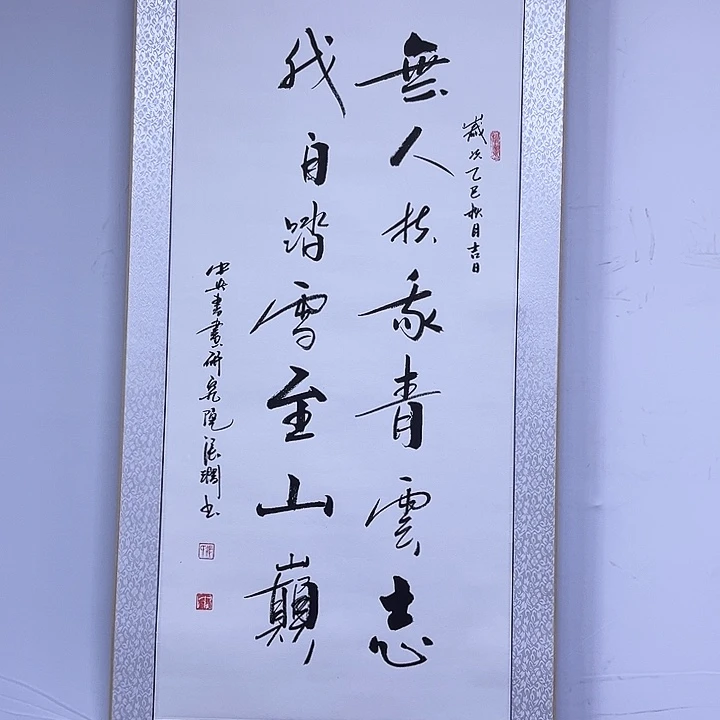 歲次乙巳秋月吉日
無人扶我青雲志
我自踏雪至山巔
中央書畫研究院張
書